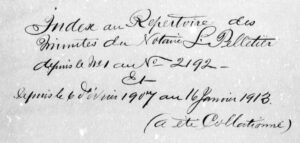 Index au Répertoire des
Minutes du Notaire L. Pelletier
depuis le No 1 au No - 2192 -
Et
Depuis le 6 Février 1907 au 16 Janvier 1913.
(a été Collationné)